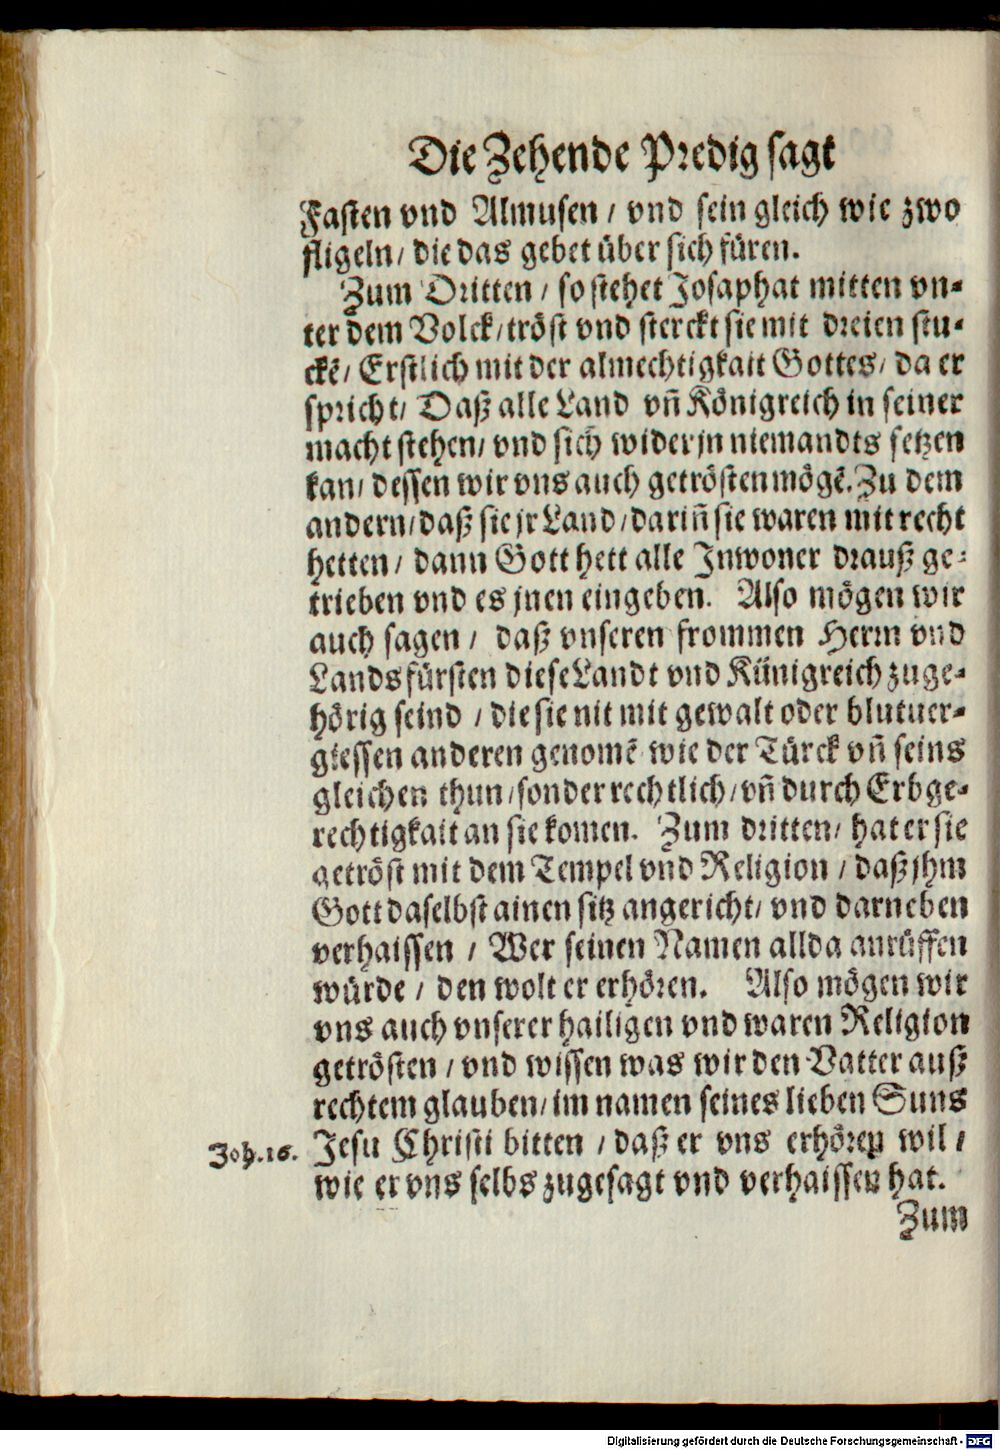 Die Zehende Predig sagt
Fasten vnd Almusen / vnd sein gleich wie zwo
fligeln / die das gebet über sich füren.
Zum Dritten / so stehet Josaphat mitten vn-
ter dem Volck / tröst vnd sterckt sie mit dreien stu-
ckē / Erstlich mit der almechtigkait Gottes / da er
spricht / Daß alle Land vn̄ Königreich in seiner
macht stehen / vnd sich wider jn niemandts setzen
kan / dessen wir vns auch getrösten mögē. Zu dem
andern / daß sie jr Land / darin̄ sie waren mit recht
hetten / dann Gott hett alle Inwoner drauß ge-
trieben vnd es jnen eingeben. Also mögen wir
auch sagen / daß vnseren frommen Herrn vnd
Landsfürsten diese Landt vnd Künigreich zuge-
hörig seind / die sie nit mit gewalt oder blutuer-
giessen anderen genomē wie der Türck vn̄ seins
gleichen thun / sonder rechtlich / vn̄ durch Erbge-
rechtigkait an sie komen. Zum dritten / hat er sie
getröst mit dem Tempel vnd Religion / daß jhm
Gott daselbst ainen sitz angericht / vnd darneben
verhaissen / Wer seinen Namen allda anrüffen
würde / den wolt er erhören. Also mögen wir
vns auch vnserer hailigen vnd waren Religion
getrösten / vnd wissen was wir den Vatter auß
rechtem glauben / im namen seines lieben Suns
Joh. 16. Jesu Christi bitten / daß er vns erhören wil /
wie er vns selbs zugesagt vnd verhaissen hat.
Zum
Digitalisierung gefördert durch die Deutsche Forschungsgemeinschaft - DFG